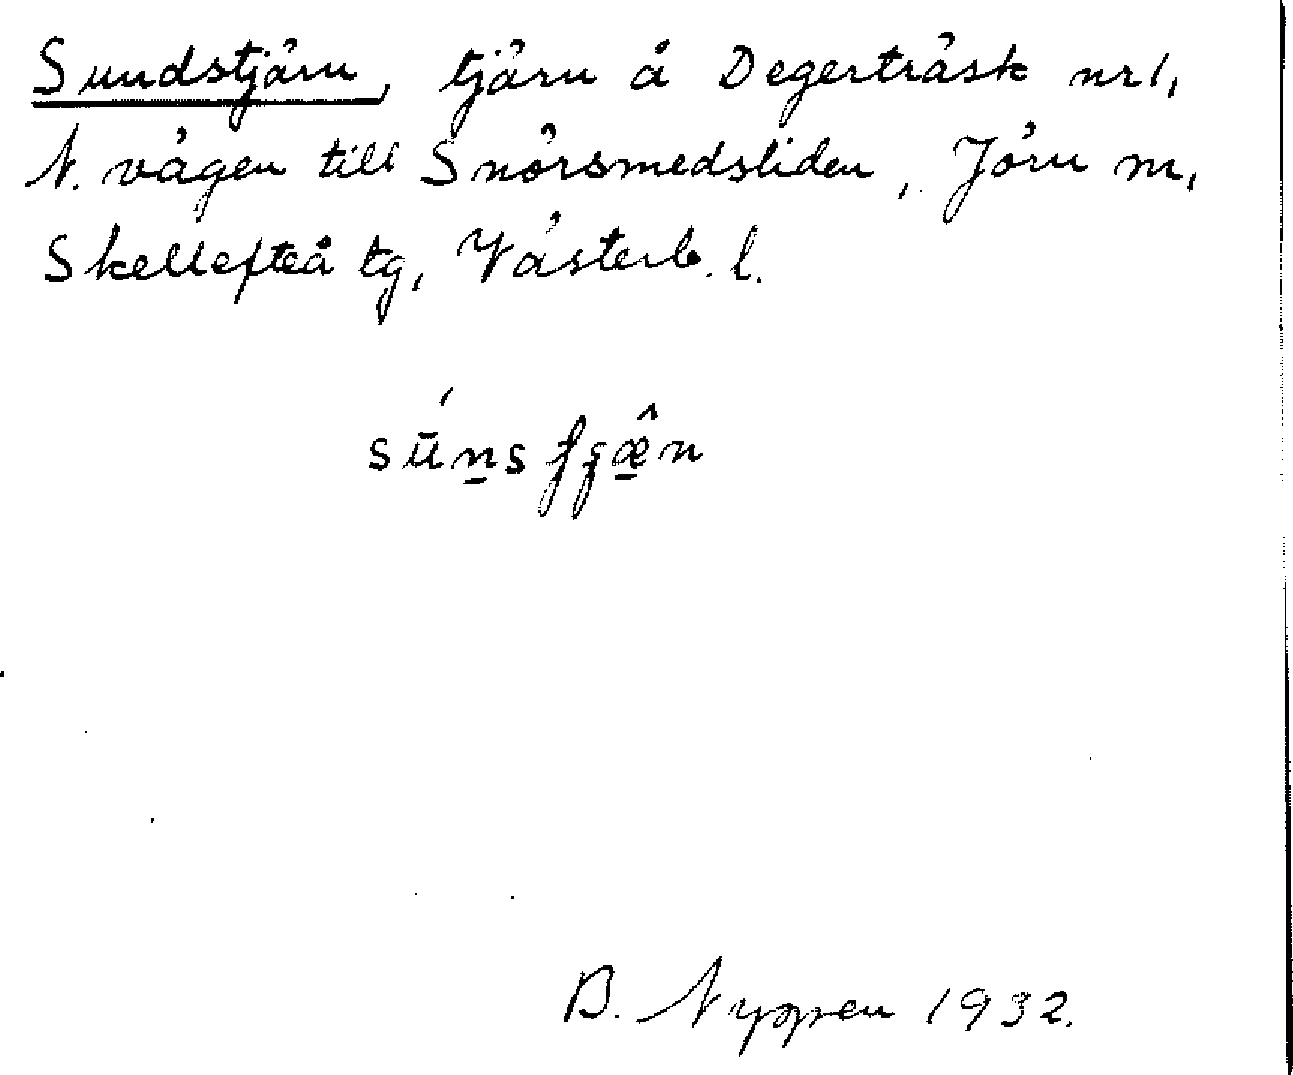 Sundstjärn, tjärn å Degerträsk nr 1,
N. vägen till Snörsmedsliden, Jörn m,
Skellefteå tg, Västerb. l.
B. Nyppen 1932.